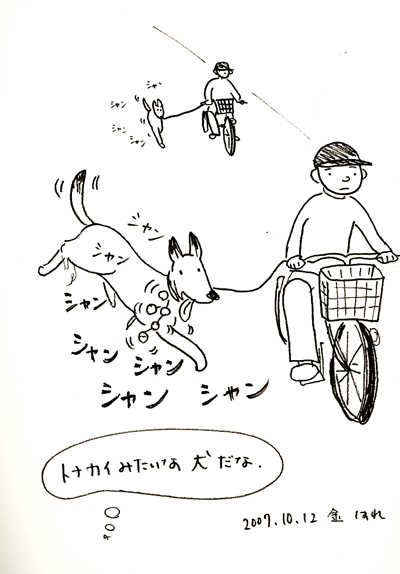 シャン
シャン
シャン
シャン
シャン
シャン
シャン
シャン
シャン
シャン
シャン
トナカイみたいな 犬だな.
2007.10.12 金 はれ